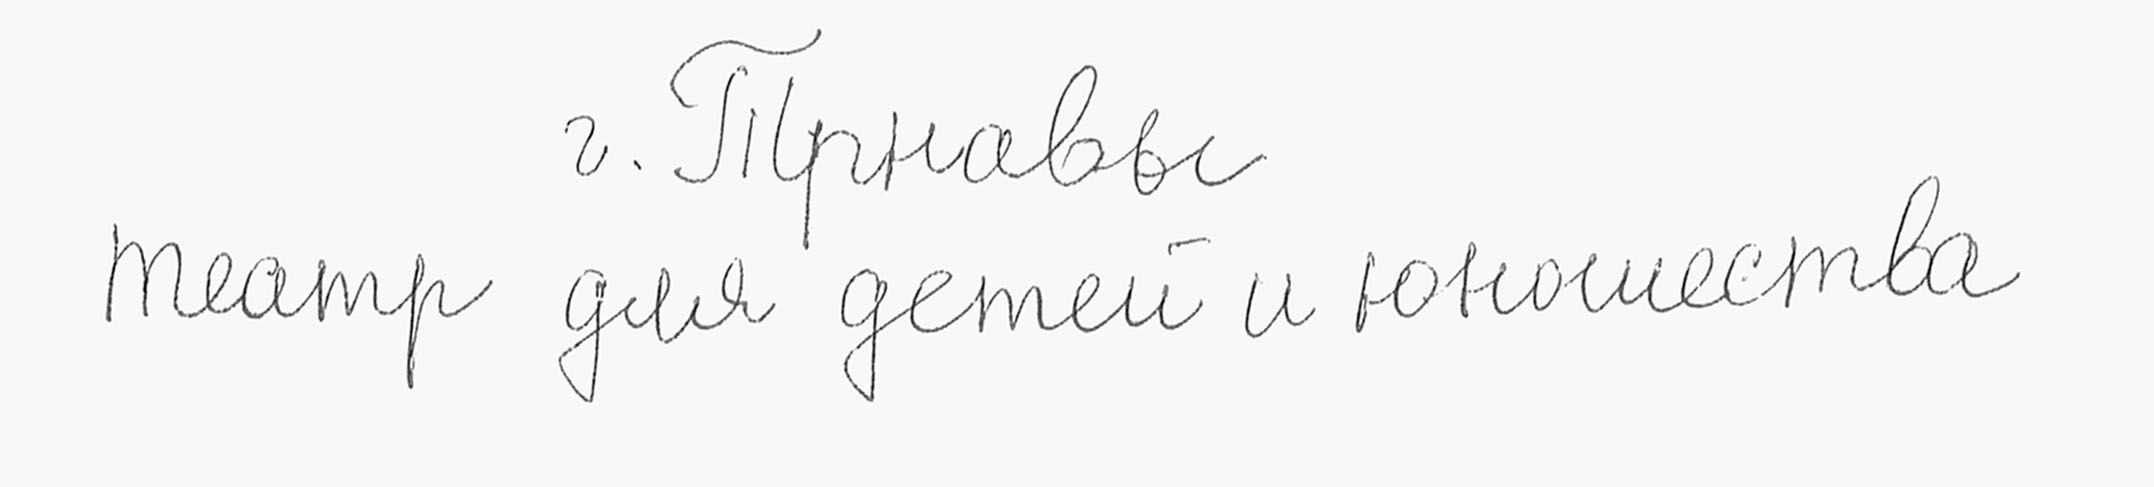 г. Трнавы
театр для детей и юношества